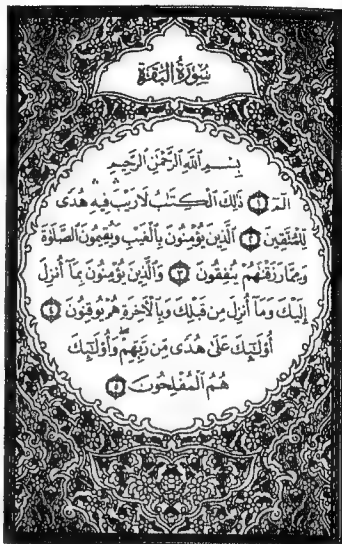 سُورَةُ الْبَقَرَةِ
بِسْمِ اللَّهِ الرَّحْمَٰنِ الرَّحِيمِ
الٓمٓ ١ ذَٰلِكَ الْكِتَٰبُ لَا رَيْبَ ۛ فِيهِ ۛ هُدًى
لِّلْمُتَّقِينَ ٢ الَّذِينَ يُؤْمِنُونَ بِالْغَيْبِ وَيُقِيمُونَ الصَّلَوٰةَ
وَمِمَّا رَزَقْنَٰهُمْ يُنفِقُونَ ٣ وَالَّذِينَ يُؤْمِنُونَ بِمَآ أُنزِلَ
إِلَيْكَ وَمَآ أُنزِلَ مِن قَبْلِكَ وَبِالْآخِرَةِ هُمْ يُوقِنُونَ ٤
أُولَٰٓئِكَ عَلَىٰ هُدًى مِّن رَّبِّهِمْ ۖ وَأُولَٰٓئِكَ
هُمُ الْمُفْلِحُونَ ٥